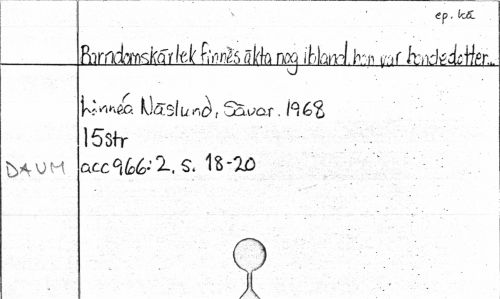 ep. kä
Barndomskärlek finnes äkta nog ibland. hon var bondedotter...
Linnéa Näslund, Sävar. 1968
15str
DAUM acc 966:2. s. 18-20